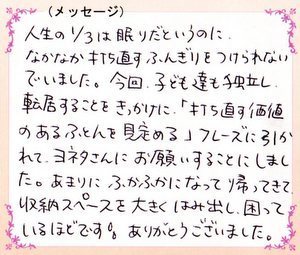 (メッセージ)
人生の1/3は眠りだというのに、
なかなか打ち直すふんぎりをつけられない
でいました。今回、子ども達も独立し、
転居することをきっかけに、「打ち直す価値
のあるふとんを見定める」フレーズに引か
れて、ヨネタさんにお願いすることにしまし
た。あまりにふかふかになって帰ってきて、
収納スペースを大きくはみ出し、困って
いるほどです。ありがとうございました。